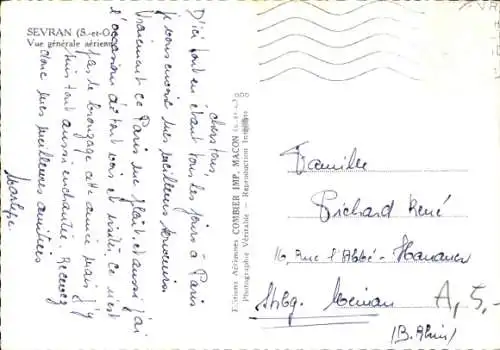 SEVRAN (S.-et-O.)
Vue générale aérienne
Chers tous,
D'ici tout en étant tous les jours à Paris
je vous envoie mes meilleurs souvenirs.
Vraiment ce Paris me plaît et aussi j'ai
l'occasion de tout voir et visiter. Ce n'est
pas le bronzage cette année mais j'y
suis tout aussi enchantée. Recevez
donc mes meilleures amitiés
Editions Aériennes COMBIER IMP. MACON (S.-et-L.)
Photographie Véritable - Reproduction Interdite
Famille
Richard René
16, Rue l'Abbé-Hanauer
Stbg. Meinau A, 5,
(B. Rhin)